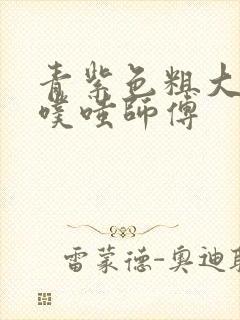 青紫色粗大
噗哇師傅
雷蒙德-奥迪耶